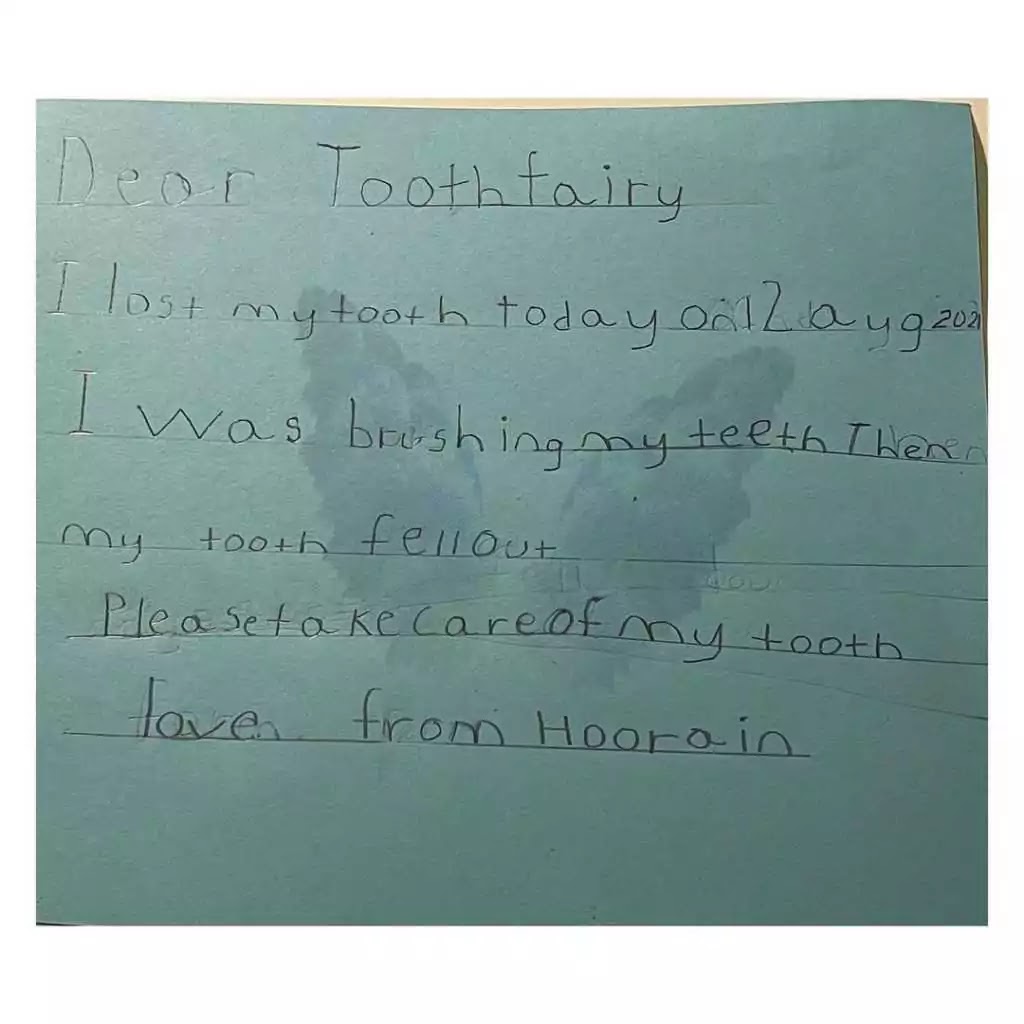 Dear Toothfairy
I lost my tooth today on 12 aug 2021
I was brushing my teeth Then
my tooth fell out
Please take care of my tooth
love from Hoorain